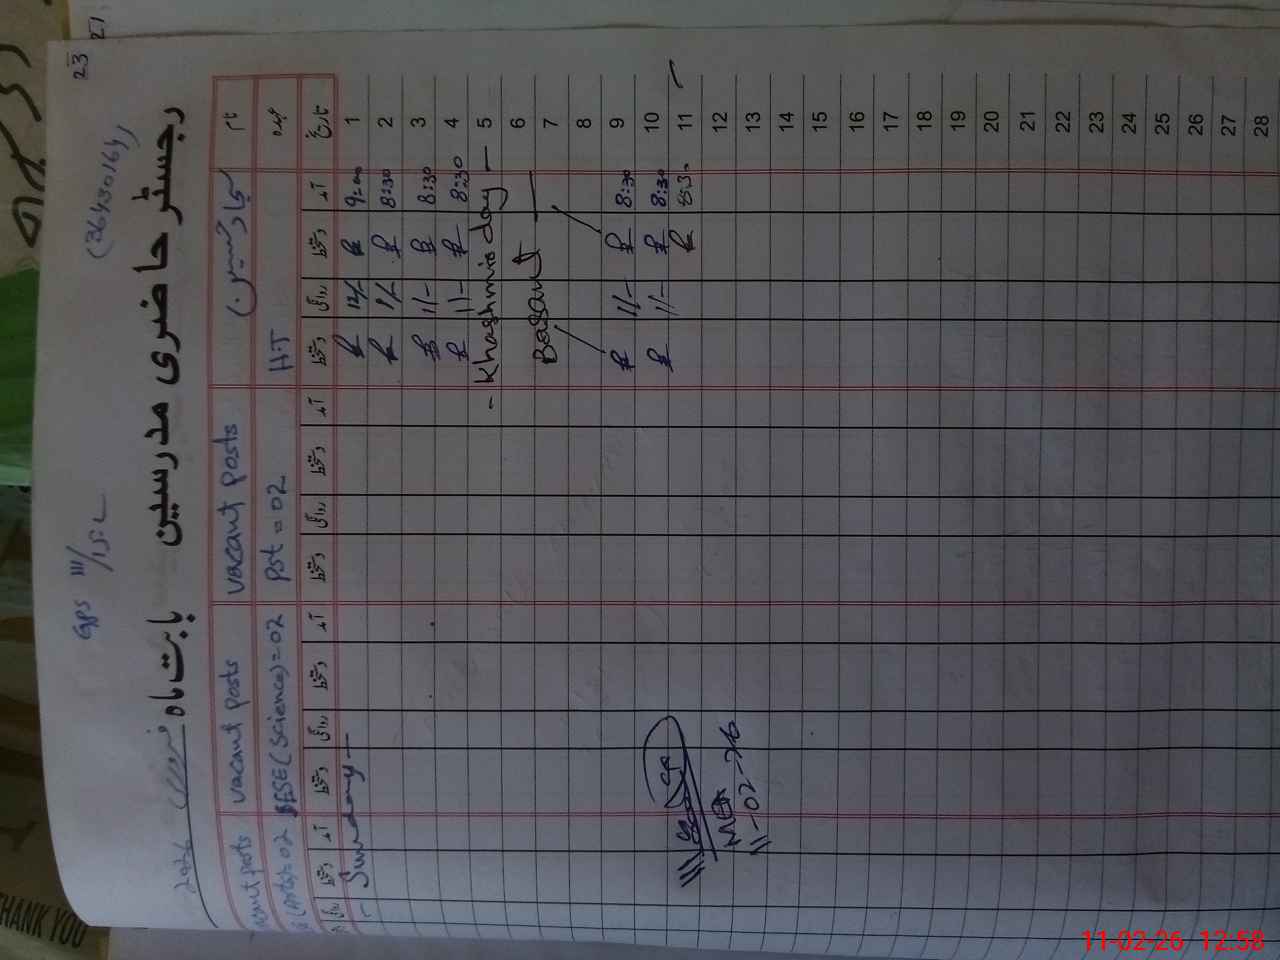 23
27
(36430164)
GPS
رجسٹر حاضری مدرسین بابت ماہ فروری 2026
نام
vacant posts
vacant posts
vacant posts
عہدہ
H.T
Pst = 02
ESE (Science) = 02
(Arts) = 02
تاریخ آمد دستخط روانگی دستخط آمد دستخط روانگی دستخط آمد دستخط روانگی دستخط آمد دستخط روانگی
1 9:00 12/- Sunday —
2 8:30 1/-
3 8:30 1/-
4 8:30 1/-
5 - Khashmir day -
6
7 Basant —
8
9 8:30 1/-
10 8:30 1/-
11 830
12
13
14
15
16
17
18
19
20
21
22
23
24
25
26
27
28
MEA
11-02-26
THANK YOU
11-02-26 12:58